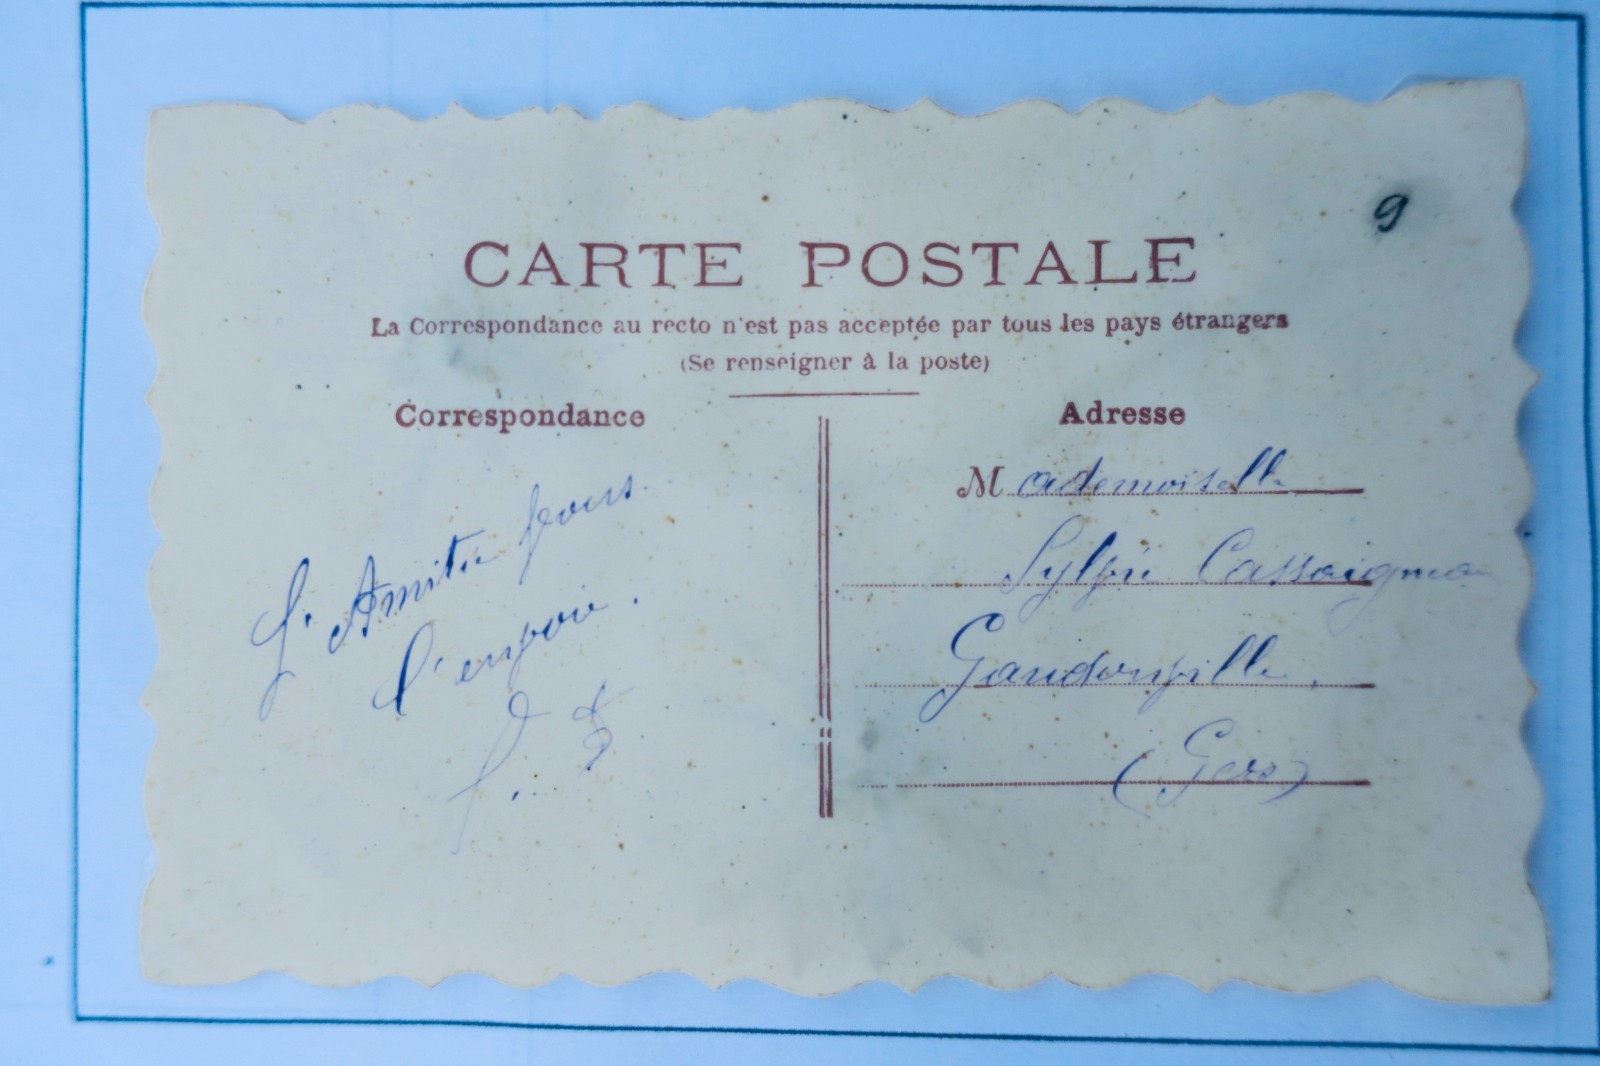 9
CARTE POSTALE
La Correspondance au recto n'est pas acceptée par tous les pays étrangers
(Se renseigner à la poste)
Correspondance
L'Amitié pour
l'envoie.
Adresse
Mademoiselle
Sylvie Cassaigneau
Gaudonville.
(Gers)